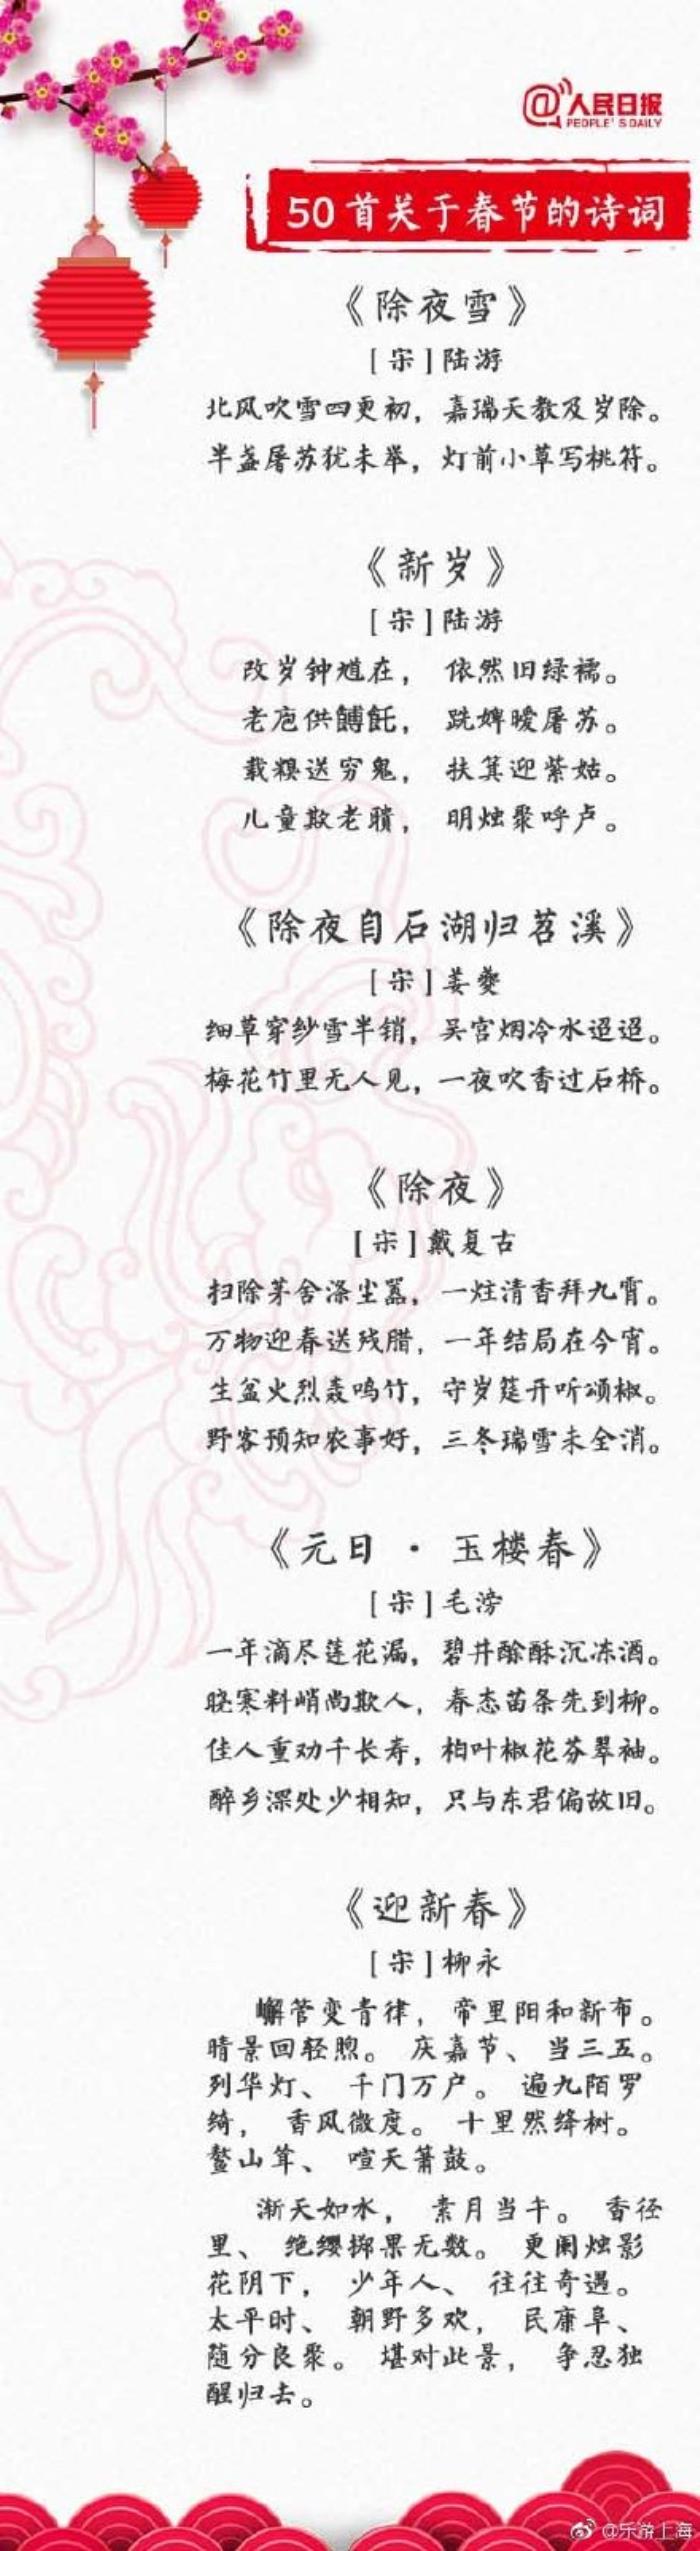 @人民日报
PEOPLE'S DAILY
50首关于春节的诗词
《除夜雪》
[宋]陆游
北风吹雪四更初，嘉瑞天教及岁除。
半盏屠苏犹未举，灯前小草写桃符。
《新岁》
[宋]陆游
改岁钟馗在， 依然旧绿襦。
老庖供餺飥， 跣婢暧屠苏。
载糗送穷鬼， 扶箕迎紫姑。
儿童欺老聩， 明烛聚呼卢。
《除夜自石湖归苕溪》
[宋]姜夔
细草穿纱雪半销，吴宫烟冷水迢迢。
梅花竹里无人见，一夜吹香过石桥。
《除夜》
[宋]戴复古
扫除茅舍涤尘嚣，一炷清香拜九霄。
万物迎春送残腊，一年结局在今宵。
生盆火烈轰鸣竹，守岁筵开听颂椒。
野客预知农事好，三冬瑞雪未全消。
《元日 · 玉楼春》
[宋]毛滂
一年滴尽莲花漏，碧井酴酥沉冻酒。
晓寒料峭尚欺人，春态苗条先到柳。
佳人重劝千长寿，柏叶椒花芬翠袖。
醉乡深处少相知，只与东君偏故旧。
《迎新春》
[宋]柳永
嶰管变青律，帝里阳和新布。
晴景回轻煦。 庆嘉节、当三五。
列华灯、 千门万户。 遍九陌罗
绮， 香风微度。 十里然绛树。
鳌山耸、 喧天箫鼓。
渐天如水， 素月当午。 香径
里、 绝缨掷果无数。 更阑烛影
花阴下， 少年人、 往往奇遇。
太平时、 朝野多欢， 民康阜、
随分良聚。 堪对此景， 争忍独
醒归去。
@乐游上海